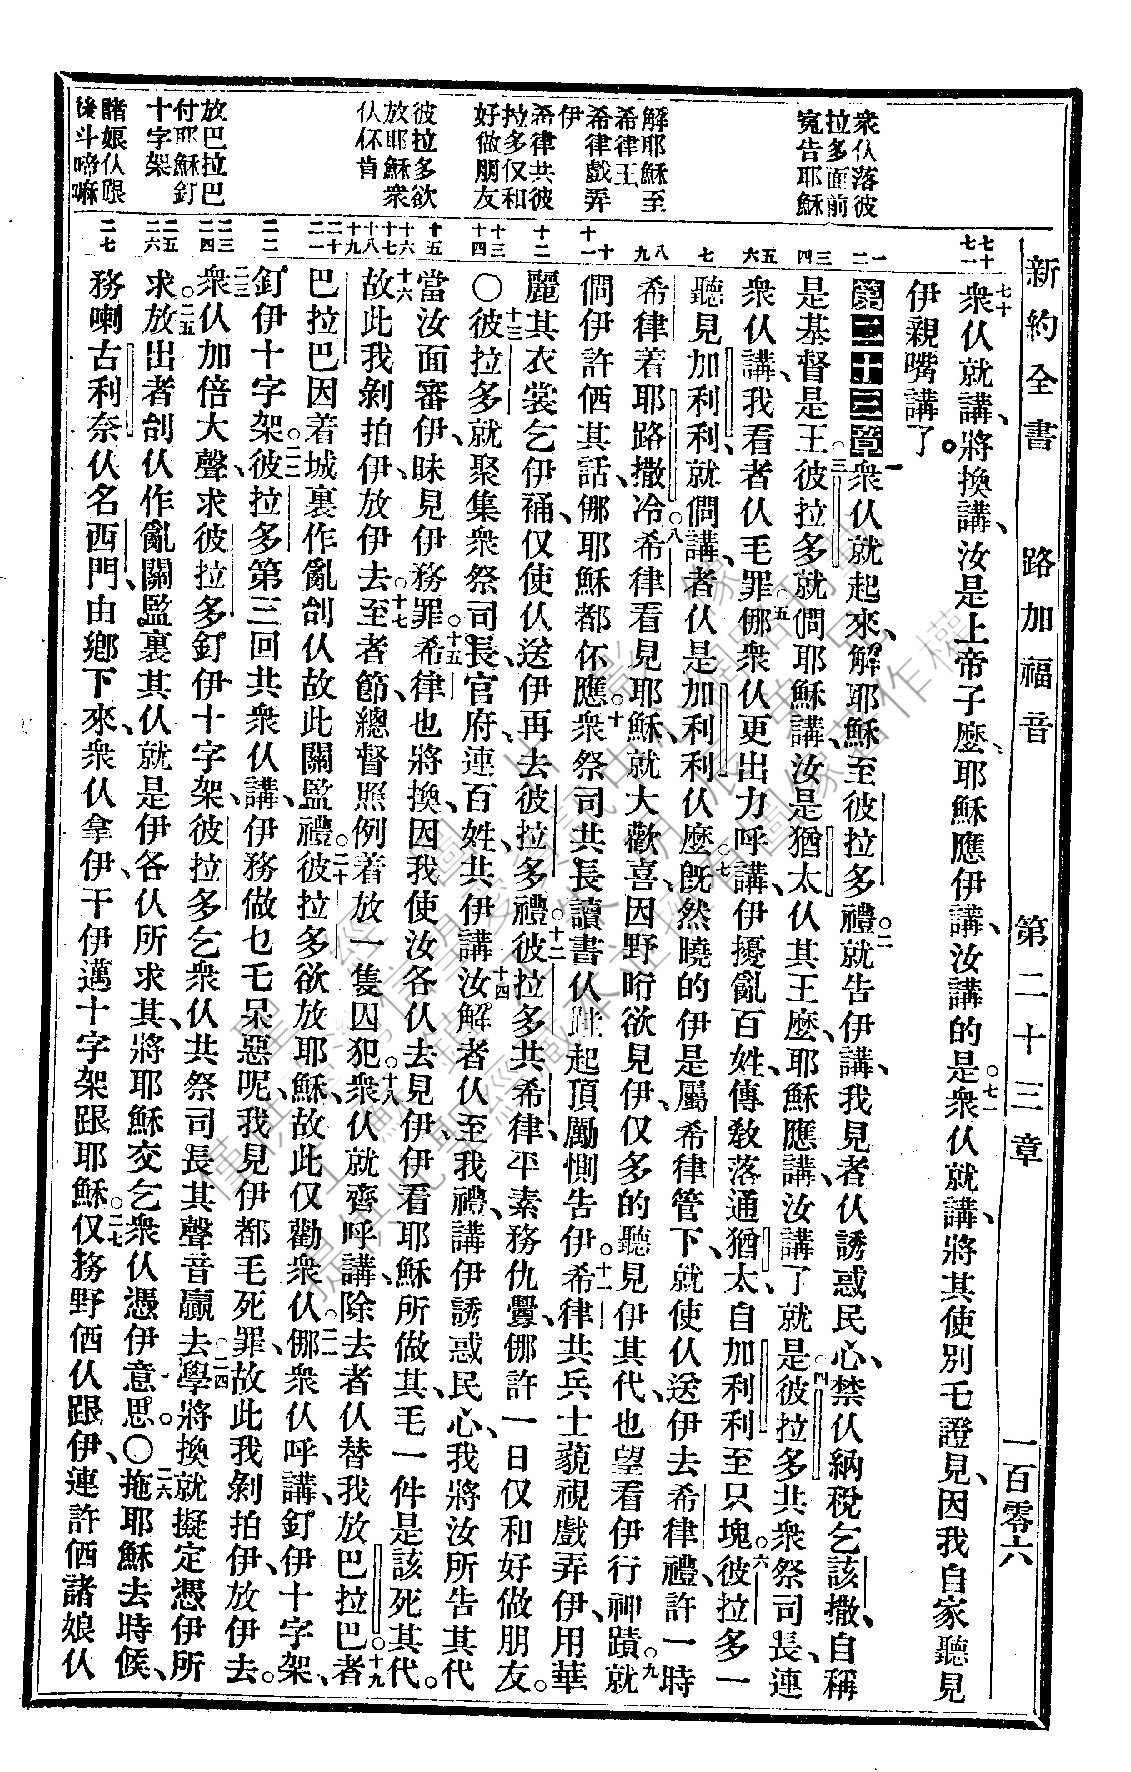 新約全書 路加福音 第二十三章 一百零六
衆仏落彼
拉多面前
寃告耶穌
解耶穌至
希律王
希律戲弄
伊
希律共彼
拉多仅和
好做朋友
彼拉多欲
放耶穌衆
仏伓肯
放巴拉巴
付耶穌釘
十字架
諸娘仏跟
後斗啼嘛
七十 七一
一 二
三 四
五 六
七
八 九
十 十一
十二
十三 十四
十五
十六 十七 十八 十九
二十 二一
二二
二三 二四
二五 二六
二七
七十衆仏就講、將換講、汝是上帝子麽、耶穌應伊講、汝講的是。七一衆仏就講、將其使別乇證見、因我自家聽見
伊親嘴講了。
第二十三章一衆仏就起來、解耶穌至彼拉多禮。二就告伊講、我見者仏誘惑民心、禁仏納稅乞該撒、自稱
是基督是王。三彼拉多就僩耶穌講、汝是猶太仏其王麽、耶穌應講、汝講了就是。四彼拉多共衆祭司長、連
衆仏講、我看者仏毛罪。五㑚衆仏更出力呼講、伊擾亂百姓、傳敎落通猶太、自加利利至只塊。六彼拉多一
聽見加利利、就僩講、者仏是加利利仏麽。七旣然曉的伊是屬希律管下、就使仏送伊去希律禮、許一時
希律着耶路撒冷。八希律看見耶穌、就大歡喜、因野晌欲見伊、仅多的聽見伊其代、也望看伊行神蹟。九就
僩伊許価其話、㑚耶穌都伓應。十衆祭司共長讀書仏、跬起頂勵惻告伊。十一希律共兵士藐視戲弄伊、用華
麗其衣裳乞伊䘄、仅使仏送伊再去彼拉多禮。十二彼拉多共希律、平素務仇釁、㑚許一日仅和好做朋友。
〇十三彼拉多就聚集衆祭司長、官府、連百姓、共伊講、十四汝解者仏至我禮、講伊誘惑民心、我將汝所告其代
當汝面審伊、昧見伊務罪。十五希律也將換、因我使汝各仏去見伊、伊看耶穌所做其、毛一件是該死其代。
十六故此我剝拍伊、放伊去。十七至者節、總督照例着放一隻囚犯。十八衆仏就齊呼講、除去者仏、替我放巴拉巴。十九者
巴拉巴因着城裏作亂刣仏、故此關監禮。二十彼拉多欲放耶穌、故此仅勸衆仏。二一㑚衆仏呼講、釘伊十字架、
釘伊十字架。二二彼拉多第三回共衆仏講、伊務做乜乇呆惡呢、我見伊都毛死罪、故此我剝拍伊、放伊去。
二三衆仏加倍大聲、求彼拉多釘伊十字架、彼拉多乞衆仏共祭司長其聲音贏去。二四學將換就擬定憑伊所
求。二五放出者刣仏作亂關監裏其仏、就是伊各仏所求其、將耶穌交乞衆仏憑伊意思。〇二六拖耶穌去時候、
務喇古利奈仏名西門、由鄉下來、衆仏拿伊、干伊邁十字架跟耶穌。二七仅務野価仏跟伊、連許価諸娘仏